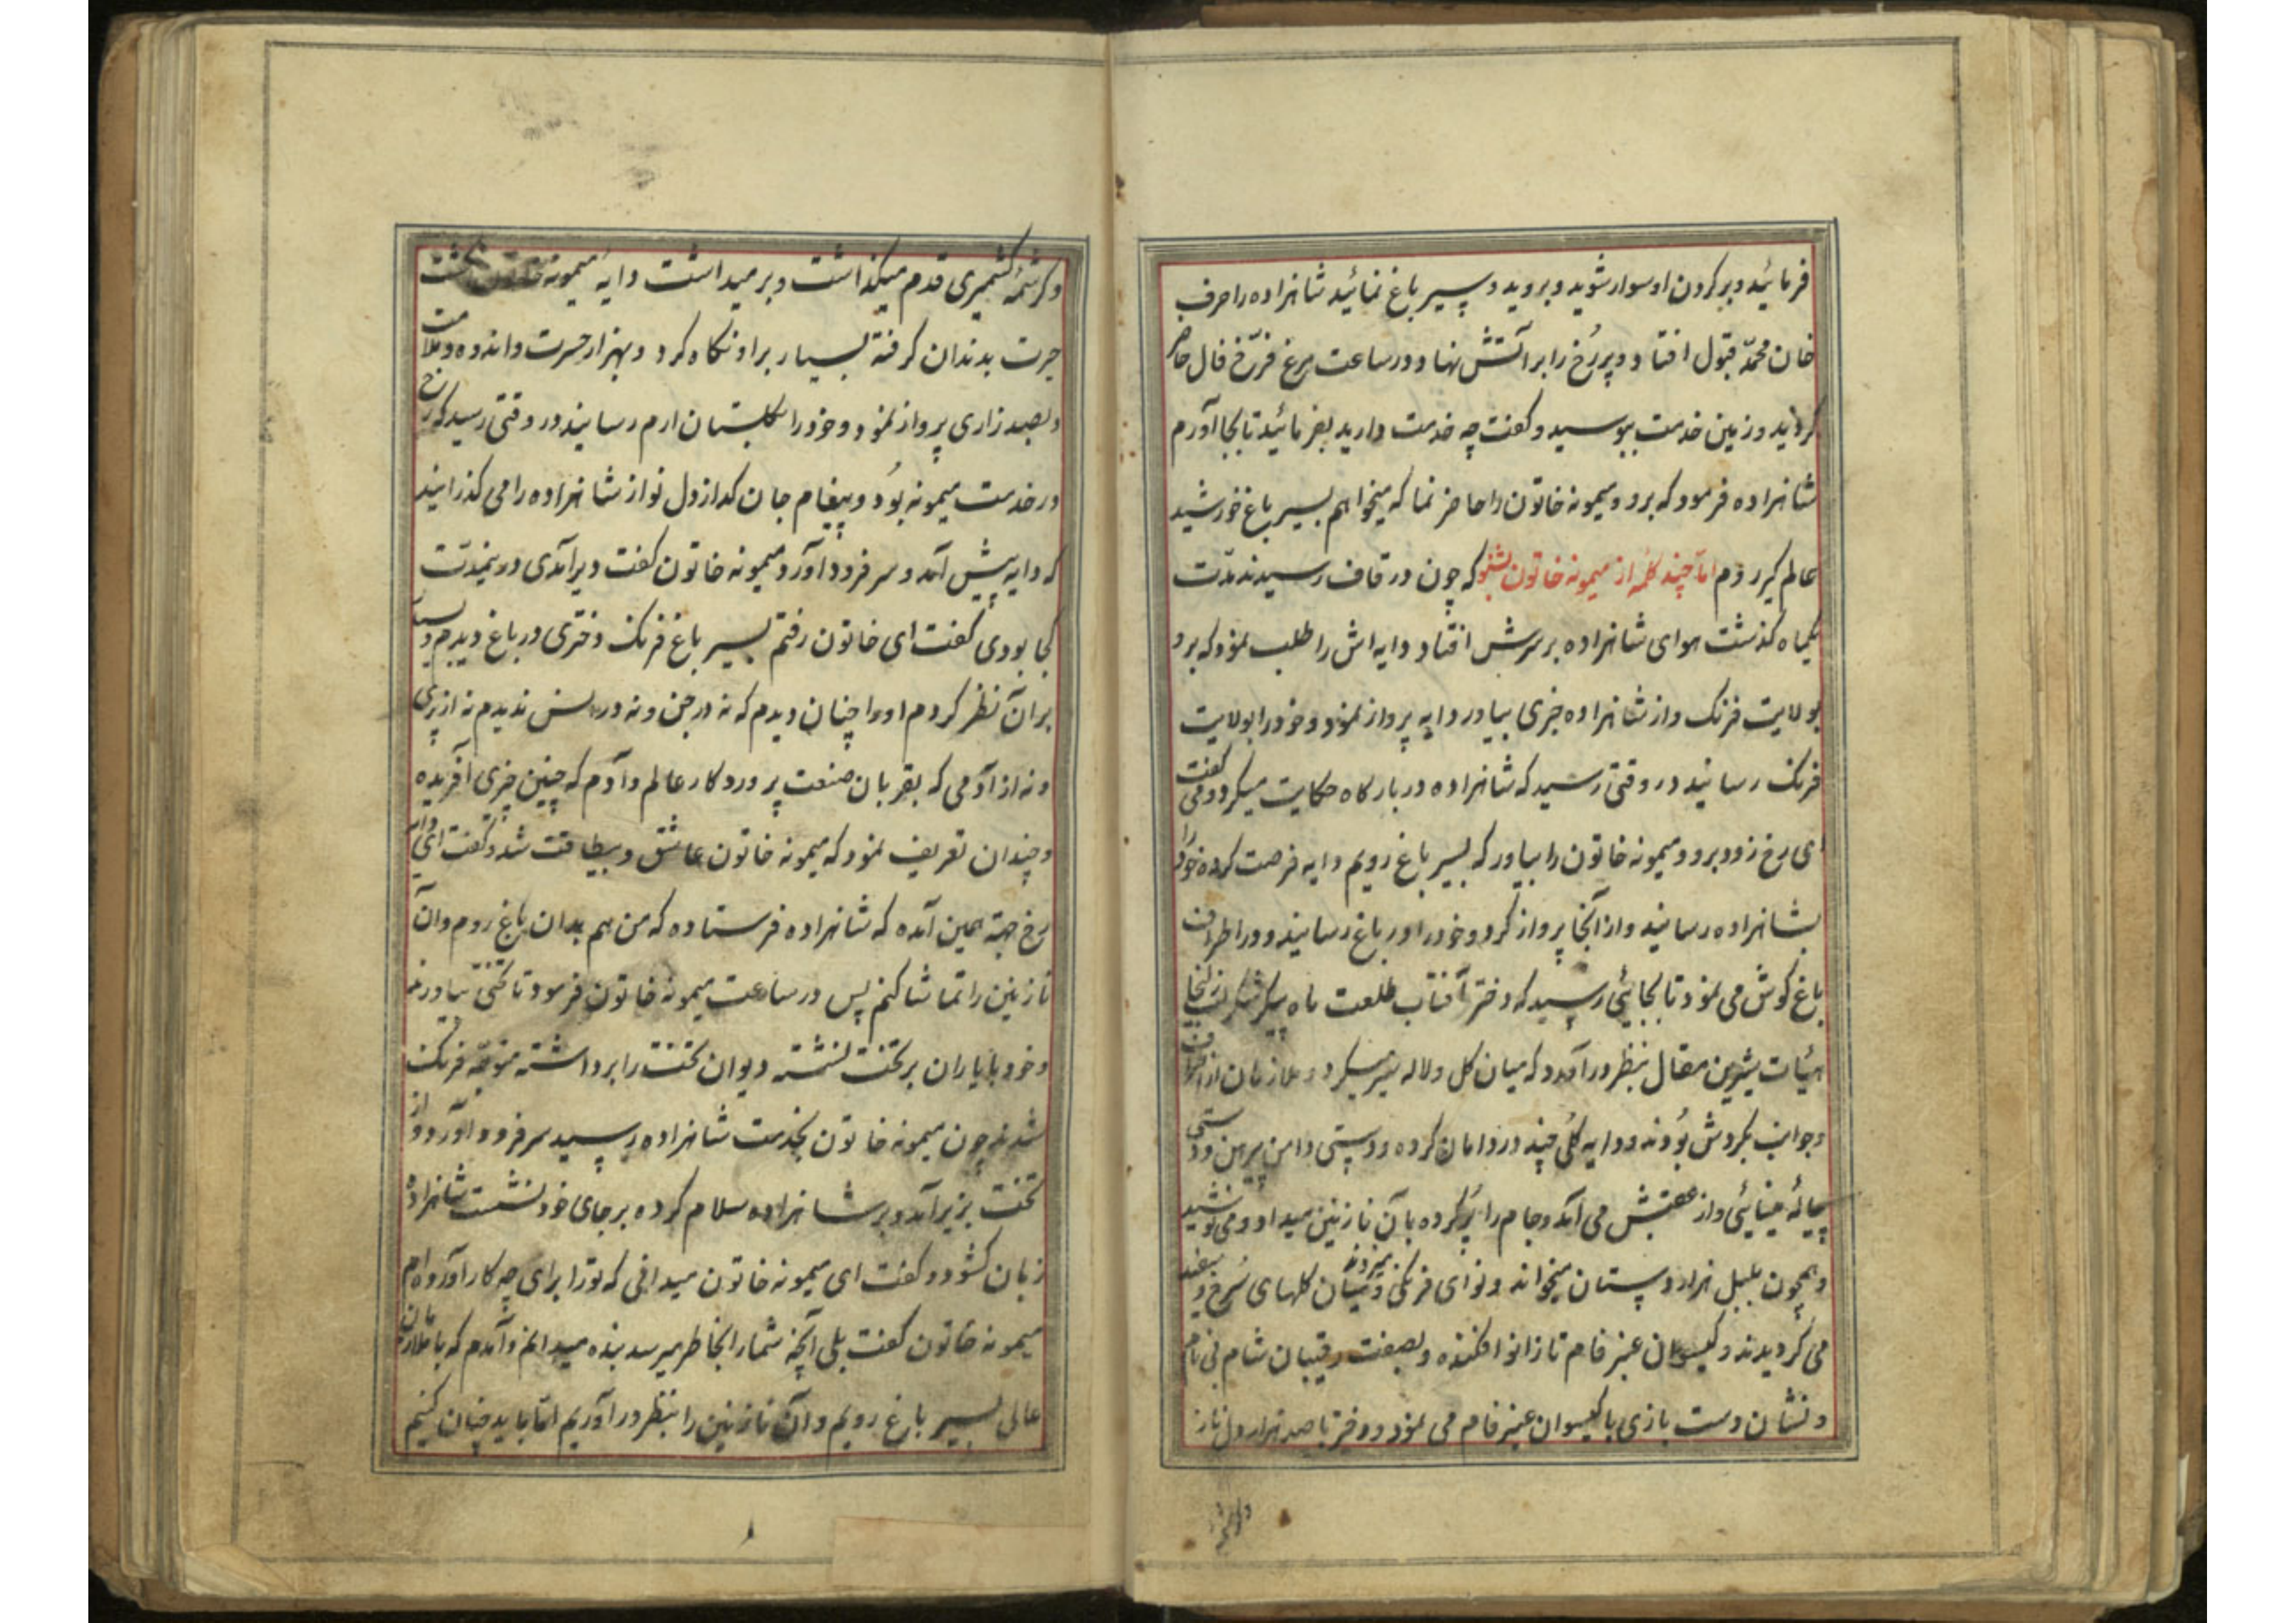 فرمائید و بر کردن او سوار شوید و بروید و بسیر باغ نمائید شاهزاده را حرف
خان محمد قبول افتاد و پر رخ را بر آتش نهاد و در ساعت مرغ فرّخ فال حاضر
کردید و زمین خدمت ببوسید و کفت چه خدمت دارید بفرمائید تا بجا آورم
شاهزاده فرمود که برو و میمونه خاتون را حاضر نما که میخواهم بسیر باغ خورشید
عالم کیر روم امّا چند کلمه از میمونه خاتون بشنو که چون در قاف رسیدند مدّت
یکماه کذشت هوای شاهزاده بر سرش افتاد دایه اش را طلب نمود که برو
بولایت فرنک و از شاهزاده خبری بیاور دایه پرواز نمود و خود را بولایت
فرنک رسانید در وقتی رسید که شاهزاده در بارکاه حکایت میکرد و می کفت
ای رخ زود برو و میمونه خاتون را بیاور که بسیر باغ رویم دایه فرصت کرده خود را
بشاهزاده رسانید و از آنجا پرواز کرد و خود را در باغ رسانید و در اطراف
باغ کوش می نمود تا بجائی رسید که دختر آفتاب طلعت ماه پیکر
هیأت شیرین مقال بنظر در آمد و که میان کل و لاله سیر میکرد و ملازمان از اطراف
و جوانب بکردش بودند و دایه کلی چند در دامان کرده و دستی دامن پیرهن و دستی
پیالهٔ مینائی و از عقبش می آمد و جام را پر کرده بآن نازنین میداد و می نوشید
و همچون بلبل هزار دستان میخواند و نوای فرنکی میزدند و میان کلهای سرخ و سفید
می کردیدند و کیسوان عنبر فام تا زانو افکنده و بصفت رقیبان شام بی نام
و نشان دست بازی با کیسوان عنبر فام می نمود و دختر با صد هزار دل ناز
و کرشمهٔ کشمیری قدم میکذاشت و بر میداشت دایهٔ میمونه
حیرت بدندان کرفته بسیار بر او نکاه کرد و بهزار حسرت و اندوه و ملامت
و بصد زاری پرواز نمود و خود را بکلستان ارم رسانید در وقتی رسید که رخ
در خدمت میمونه بود و پیغام جان کداز دل نواز شاهزاده را می کذرانید
که دایه پیش آمد و سر فرود آورد میمونه خاتون کفت دیر آمدی در ینمدّت
کجا بودی کفت ای خاتون رفتم بسیر باغ فرنک دختری در باغ دیدم و بسیار
بر آن نظر کردم او را چنان دیدم که نه در جن و نه در انس ندیدم نه از پری
و نه از آدمی که بقربان صنعت پروردکار عالم و آدم که چنین چیزی آفریده
و چندان تعریف نمود که میمونه خاتون عاشق و بیطاقت شد و کفت ای دایه
رخ جهة همین آمده که شاهزاده فرستاده که من هم بدان باغ روم و آن
نازنین را تماشا کنم پس در ساعت میمونه خاتون فرمود تا تختی بیاورند
و خود با یاران بر تخت نشسته دیوان تخت را برداشته متوجّه فرنک
شدند چون میمونه خاتون بخدمت شاهزاده رسید سر فرود آورد و از
تخت بزیر آمد و بر شاهزاده سلام کرده بر جای خود نشست شاهزاده
زبان کشود و کفت ای میمونه خاتون میدانی که تو را برای چه کار آورده ام
میمونه خاتون کفت بلی آنچه شما را بخاطر میرسد بنده میدانم و آمدم که با ملازمان
عالی بسیر باغ رویم و آن نازنین را بنظر در آوریم امّا باید چنان کنیم